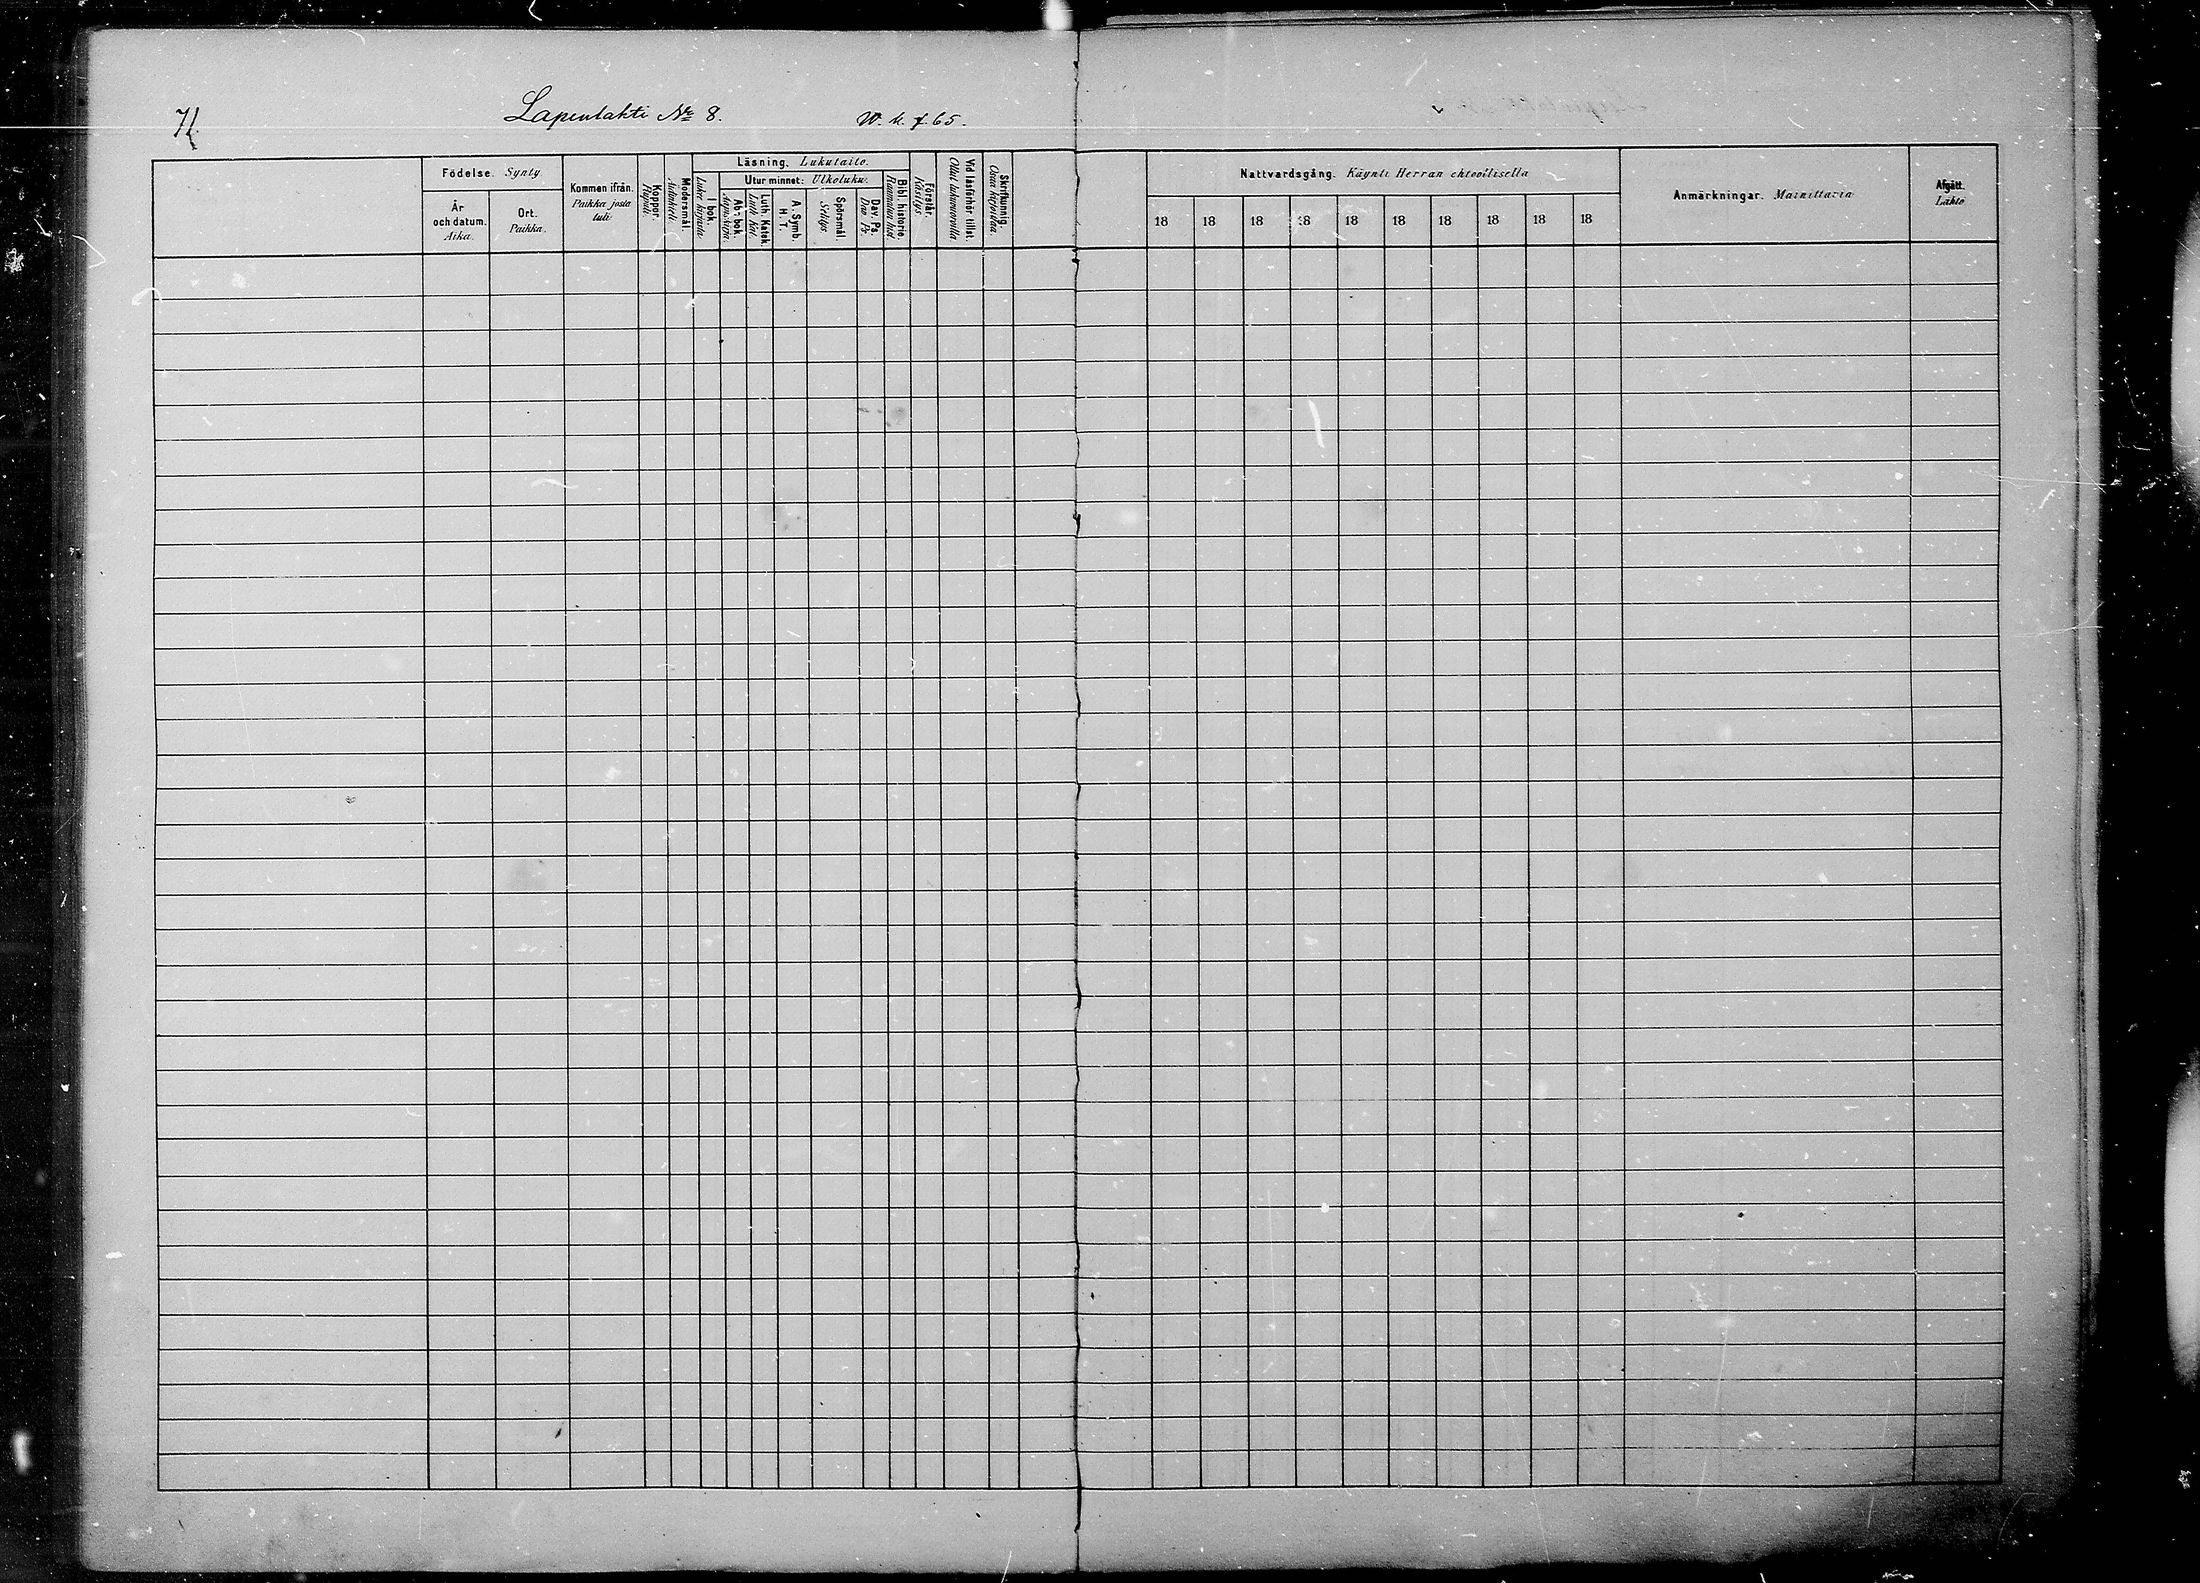 71.
Lapinlahti № 8. W. k. f. 65.
Födelse. Synty.
År och datum. Aika.
Ort. Paikka.
Kommen ifrån. Paikka josta tuli.
Koppor. Rupuli.
Modersmål. Äidinkieli.
Läsning. Lukutaito.
I bok. Lukee kirjasta.
Utur minnet: Ulkoluku.
Ab-bok. Aapiskirja.
Luth. Katek. Luth. Kat.
A. Symb. H. T.
Spörsmål. Selitys.
Dav. Ps. Dav. Ps.
Bibl. historie. Raamatun hist.
Förstår. Käsitys.
Vid läsförhör tillst. Ollut lukuvuorolla.
Skrifkunnig. Osaa kirjoittaa.
Nattvardsgång. Käynti Herran ehtoollisella
18 18 18 18 18 18 18 18 18 18
Anmärkningar. Mainittavia
Afgått. Lähtö